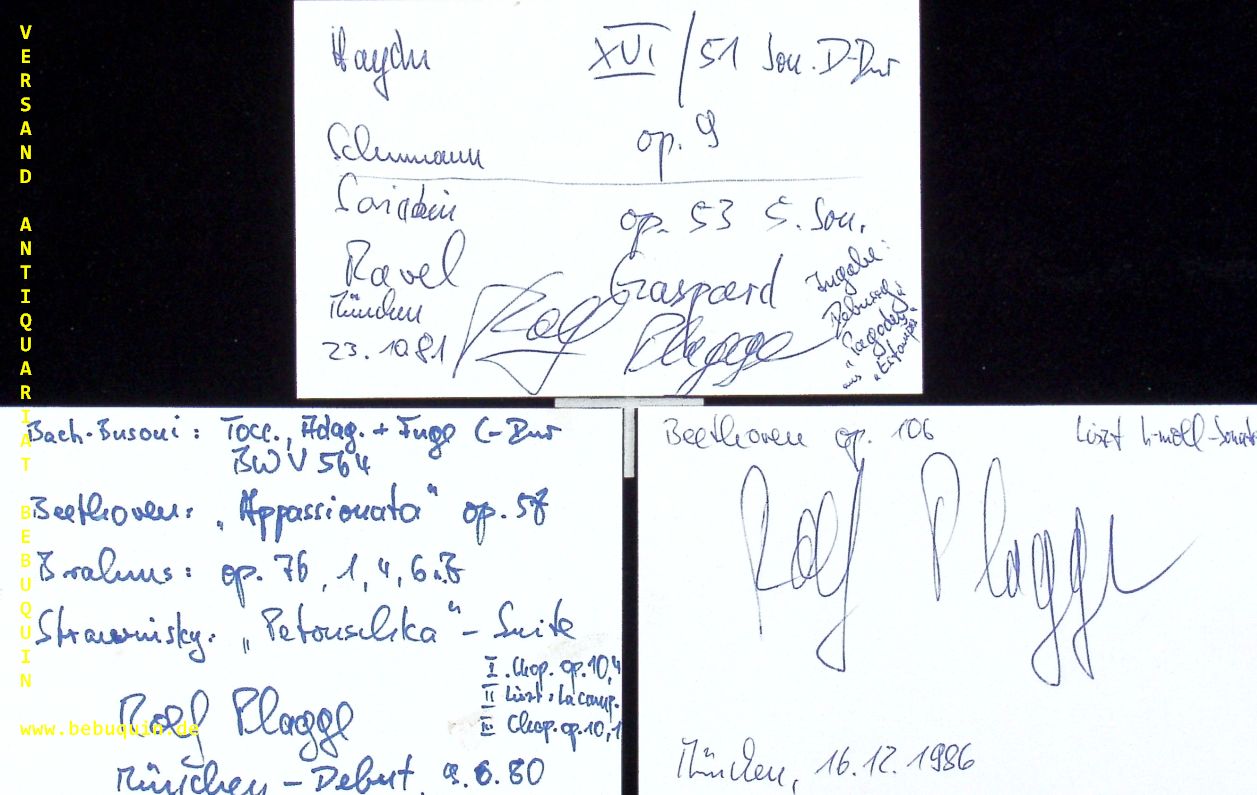 VERSAND ANTIQUARIAT BEBUQUIN
www.bebuquin.de
Haydn XVI/51 Son. D-Dur
Schumann op. 9
op. 53 5. Son.
Ravel Gaspard
München
23.10 81
Rolf Plagge
Zugabe:
Debussy
"Pagodes"
aus
"Estampes"
Bach-Busoni: Tocc., Adag. + Fuge C-Dur
BWV 564
Beethoven: „Appassionata“ op. 57
Brahms: op. 76, 1, 4, 6 u. 7
Strawinsky: „Petruschka“ – Suite
I. Chop. op. 10,4
II Liszt: La camp.
III Chop. op. 10,1
Rolf Plagge
München – Debut, 9.6.80
Beethoven op. 106 Liszt h-moll-Sonate
Rolf Plagge
München, 16.12.1986